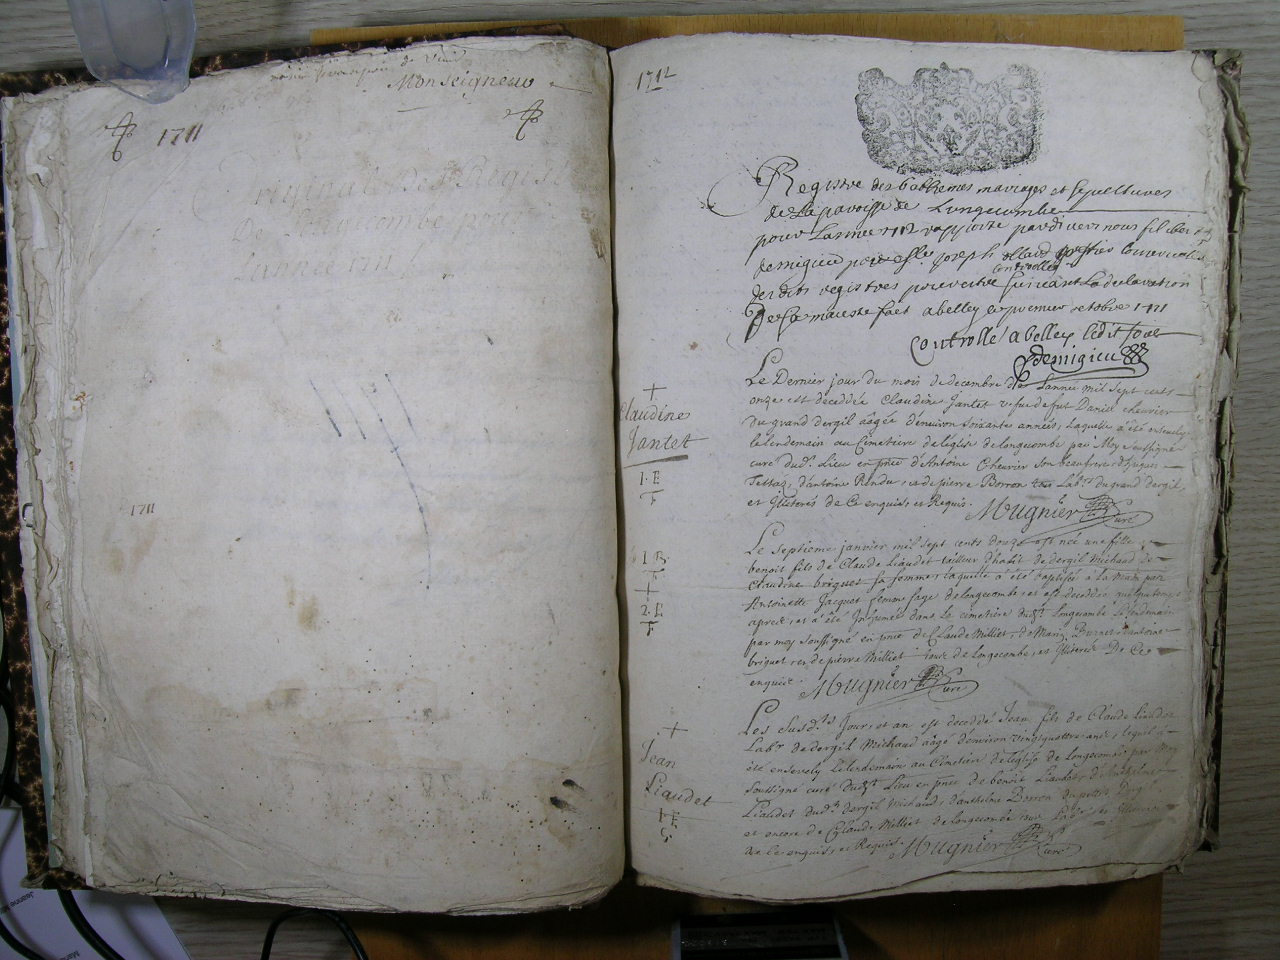 Monseigneur
1711
Original des Regist
De Longecombe pour
L'année 1711
1711
1712
Registre des bathemes mariages et sepultures
de La paroisse de Longecombe
pour Lannee 1712 rapporté pardevers nous
demigieu Joseph
controlleur
desdits registres pour estre suivant La declaration
De Sa maieste fait a belley ce premier octobre 1711
Controllé a belley ledit Jour
demigieu
Claudine
Jantet
1. E
F
Le Dernier jour du mois de decembre de L'année mil sept cents
onze est décedéé Claudine Jantet vefue de fut Daniel chevrier
du grand dergil ââgéé d'environ soixante annéés, Laquelle a été ensevely
le lendemain au Cimetiere de l'eglise de longecombe par Moy soussigné
curé dud.t Lieu en pnce d'Antoine Chevrier son beaufrere, d'hugues
Tettaz, d'antoine Rendu, et de pierre Borron tous Lab.rs du grand dergil,
et Illiterés de Ce enquis, et Requis. Mugnier Curé
1. B.
F
2. E
F
Le septieme janvier mil sept cents douze est néé une fille
benoit fils de Claude Liaudet tailleur d'habit de dergil Michaud de
Claudine briguet sa femme, laquelle a été baptiséé a la Maison par
Antoinette Jacquet femme sage de longecombe, et est decedéé quelque temps
apres, et a été Inhuméé dans le cimetiere dud.t Longecombe Le lendemain
par moy soussigné en pnce de Claude Milliet, de Marin Burnet, d'antoine
briguet, et de pierre Milliet tous de Longecombe, et Illiterés De Ce
enquis. Mugnier Curé
Jean
Liaudet
1. E
G.
Les susd.ts Jour, et an est decedé Jean fils de Claude Liaudet
Lab.r de dergil Michaud âagé d'environ vingt quattre ans, lequel a
été ensevely Le lendemain au Cimetiere de l'eglise de longecombe par Moy
soussigné curé dud.t Lieu en pnce de benoit Liaudet, d'Anthelme
Liaudet dud.t dergil Michaud, d'anthelme Borron
et encore de Claude Milliet de longecombe tous Lab.rs et Illiterés
de Ce enquis, et Requis. Mugnier Curé